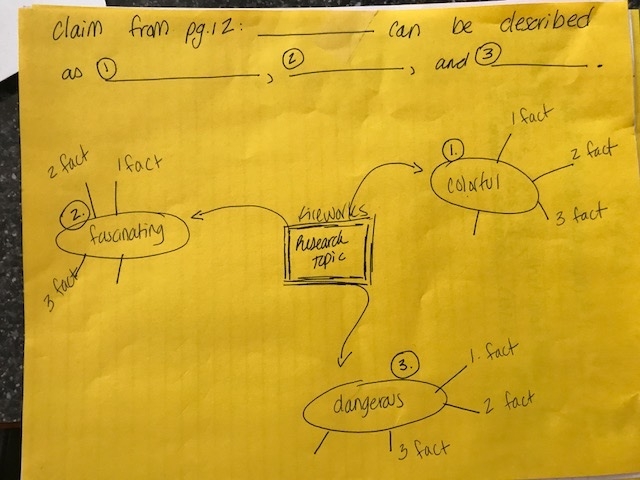 Claim from pg.12: ________ can be described
as ① ________, ② ________, and ③ ________.
1 fact
1.
colorful
2 fact
3 fact
2 fact
1 fact
2.
fascinating
3 fact
fireworks
Research
Topic
3.
dangerous
1. fact
2 fact
3 fact